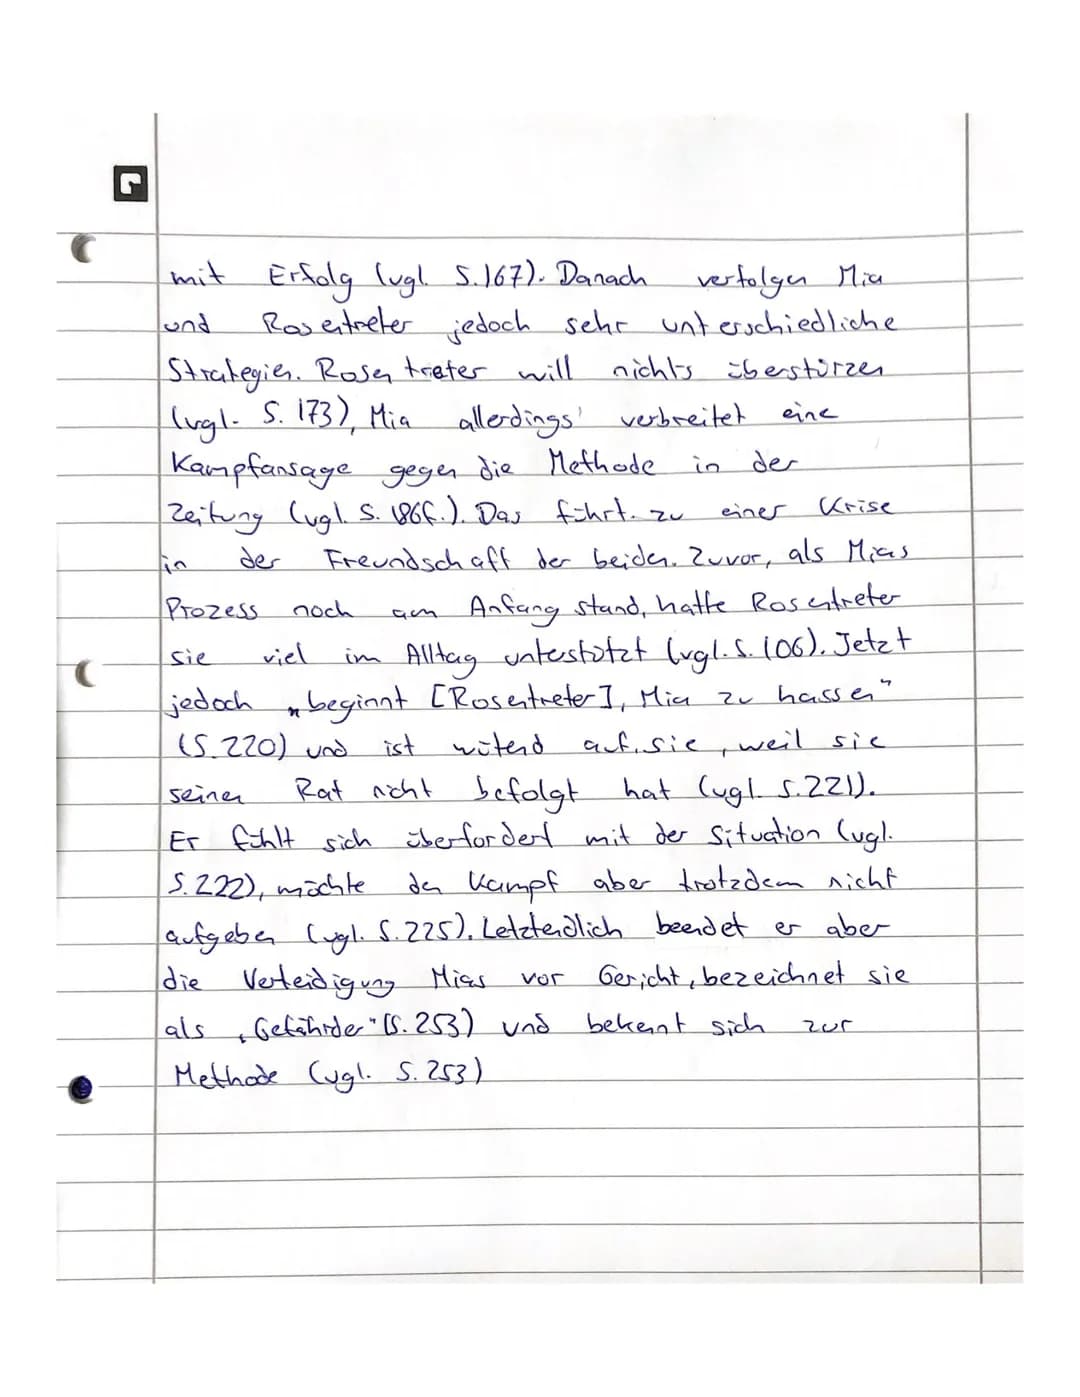 mit Erfolg (vgl. S.167). Danach verfolgen Mia
und Rosentreter jedoch sehr unterschiedliche
Strategien. Rosentreter will nichts überstürzen
(vgl. S. 173), Mia allerdings verbreitet eine
Kampfansage gegen die Methode in der
Zeitung (vgl. S. 186f.). Das führt zu einer Krise
in der Freundschaft der beiden. Zuvor, als Mias
Prozess noch am Anfang stand, hatte Rosentreter
sie viel im Alltag unterstützt (vgl. S. 106). Jetzt
jedoch „beginnt [Rosentreter], Mia zu hassen“
(S. 220) und ist wütend auf sie, weil sie
seinen Rat nicht befolgt hat (vgl. S. 221).
Er fühlt sich überfordert mit der Situation (vgl.
S. 222), möchte den Kampf aber trotzdem nicht
aufgeben (vgl. S. 225). Letztendlich beendet er aber
die Verteidigung Mias vor Gericht, bezeichnet sie
als „Gefährder“ (S. 253) und bekennt sich zur
Methode (vgl. S. 253)